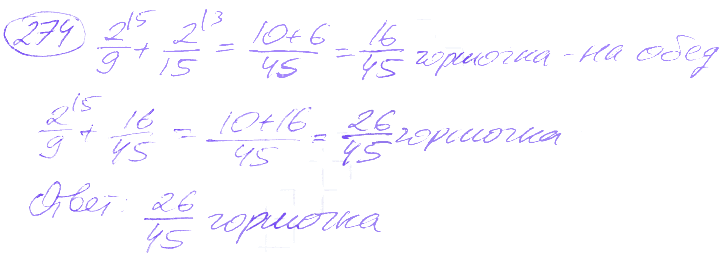 274 2/9^\5 + 2/15^\3 = (10+6)/45 = 16/45 гормочка - на обед
2/9^\5 + 16/45 = (10+16)/45 = 26/45 гормочка
Ответ: 26/45 гормочка